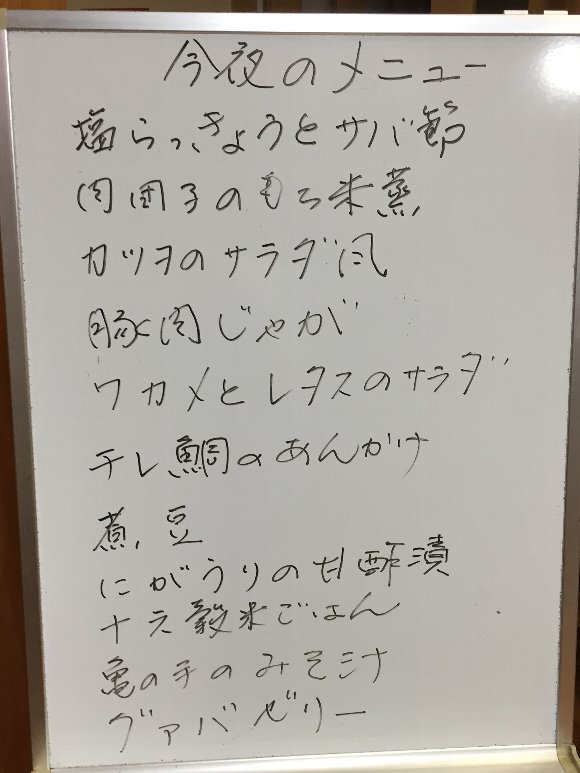 今夜のメニュー
塩らっきょうとサバ節
肉団子のもち米蒸
カツヲのサラダ風
豚肉じゃが
ワカメとレタスのサラダ
チレ鯛のあんかけ
煮豆
にがうりの甘酢漬
十六穀米ごはん
亀の手のみそ汁
グァバゼリー